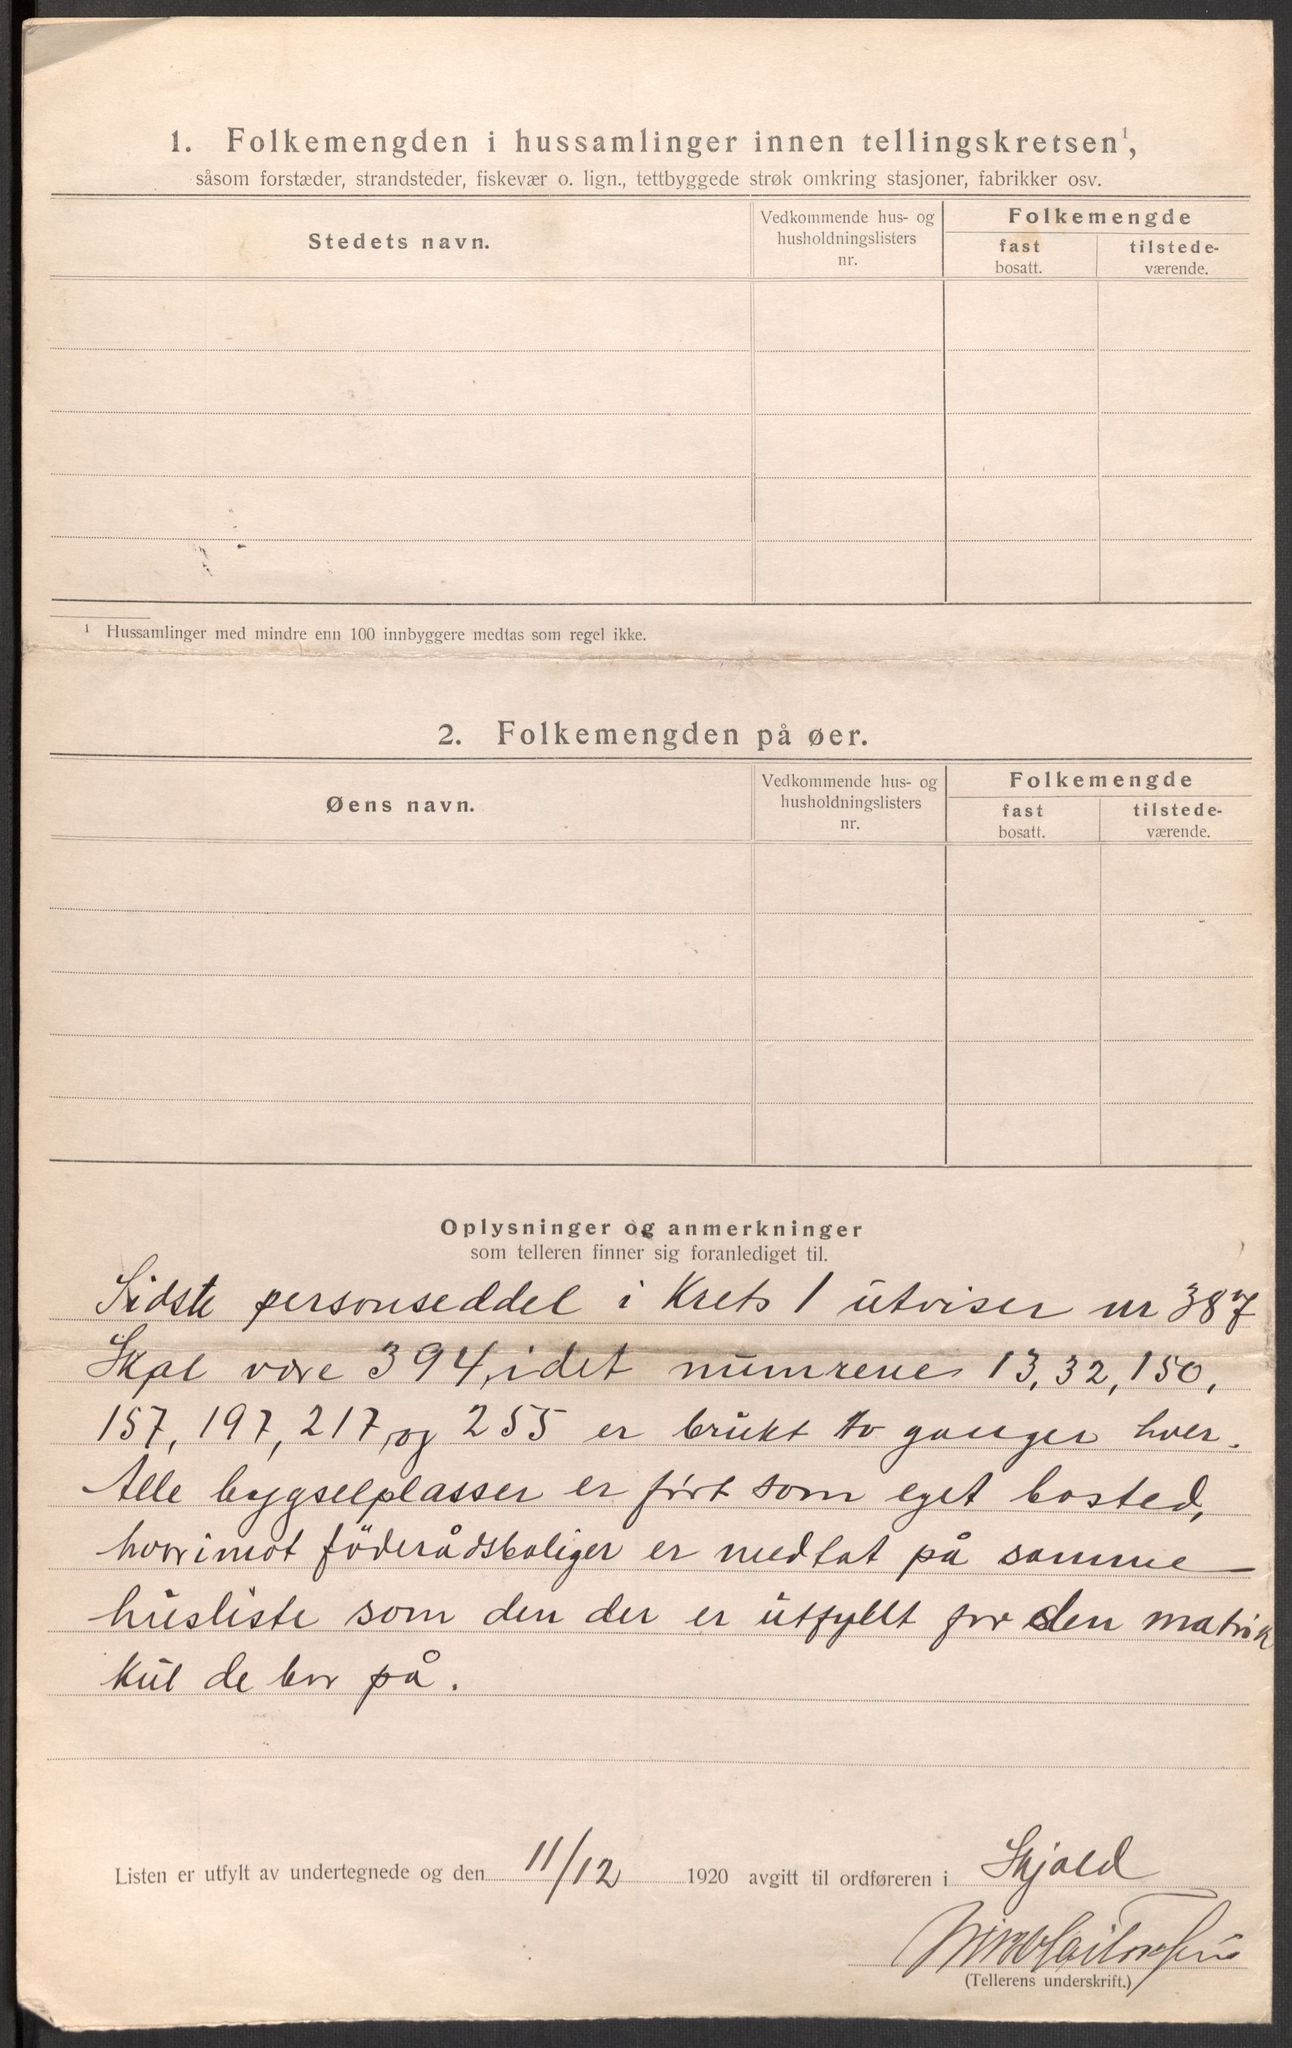 1. Folkemengden i hussamlinger innen tellingskretsen¹,
såsom forstæder, strandsteder, fiskevær o. lign., tettbyggede strøk omkring stasjoner, fabrikker osv.
Stedets navn.
Vedkommende hus- og
husholdningslisters
nr.
Folkemengde
fast
bosatt.
tilstede-
værende.
¹ Hussamlinger med mindre enn 100 innbyggere medtas som regel ikke.
2. Folkemengden på øer.
Øens navn.
Vedkommende hus- og
husholdningslisters
nr.
Folkemengde
fast
bosatt.
tilstede-
værende.
Oplysninger og anmerkninger
som telleren finner sig foranlediget til.
Sidste personseddel i Krets 1 utviser nr 387
Skal være 394, idet numrene 13, 32, 150,
157, 197, 217, og 255 er brukt to ganger hver.
Alle bygselplasser er ført som eget bosted,
hvorimot föderådsboliger er medtat på samme
husliste som den der er utfyllt for den matrik
kul de bor på.
Listen er utfylt av undertegnede og den 11/12 1920 avgitt til ordføreren i Skjold
(Tellerens underskrift.)